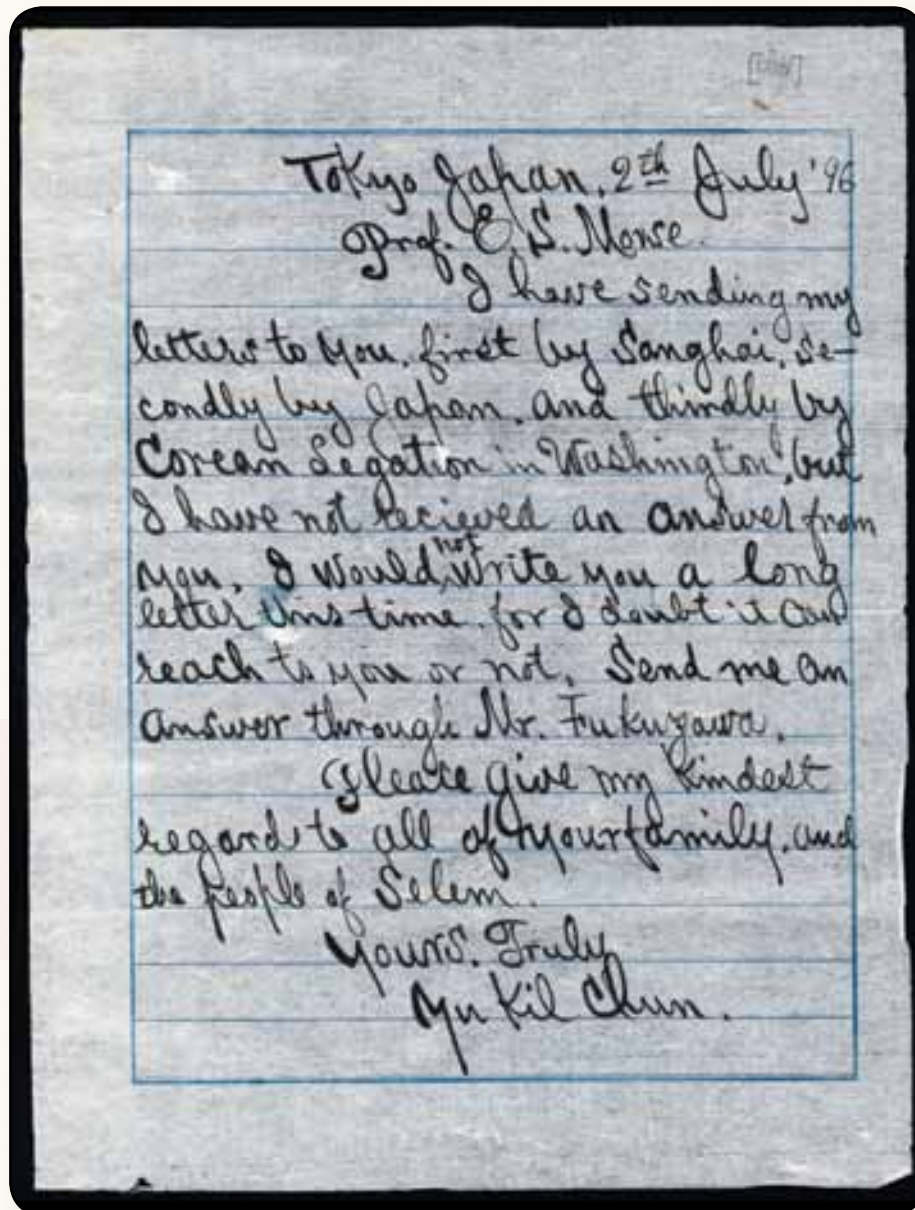 Tokyo Japan. 2th July '96
Prof. E. S. Morse.
I have sending my
letters to you. first by Sanghai. se-
condly by Japan. and thirdly by
Corean Legation in Washington, but
I have not recieved an answer from
you. I would not write you a long
letter this time. for I doubt it can
reach to you or not. Send me an
answer through Mr. Fukuzawa.
Please give my kindest
regard to all of your family. and
the people of Selem.
Yours. Truly
Yu Kil Chun.